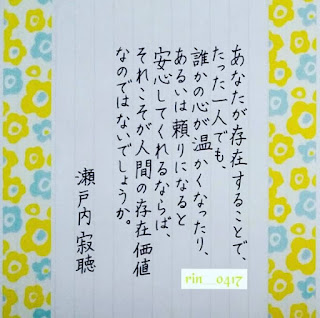 あなたが存在することで、
たった一人でも、
誰かの心が温かくなったり、
あるいは頼りになると
安心してくれるならば、
それこそが人間の存在価値
なのではないでしょうか。
瀬戸内 寂聴
rin__0417